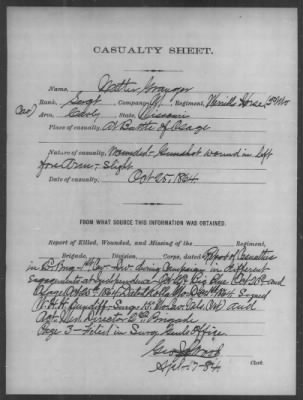 CASUALTY SHEET.
Name, Walter Granger
Rank, Sergt Company, Regiment, Merrills Horse (2d Mo
Cav) Arm, Cav State, Missouri
Place of casualty, At Battle of Osage
Nature of casualty, Wounded - Gunshot wound in left
forearm - slight
Date of casualty, Oct 25, 1864
FROM WHAT SOURCE THIS INFORMATION WAS OBTAINED.
Report of Killed, Wounded, and Missing of the Regiment,
Brigade, Division, Corps, dated Report of Casualties
in Brig. Cav. during Campaign in different
Engagements at Independence Oct 22 Big Blue Oct 23 and
Osage Oct 25 1864 Dated 1864 Signed
H. H. Surg. Cav. and
Act. Med. Director Brigade
Page 3 - Filed in Surg Genls Office
Geo. S. Wood
Clerk.
Apl - 7 - 84